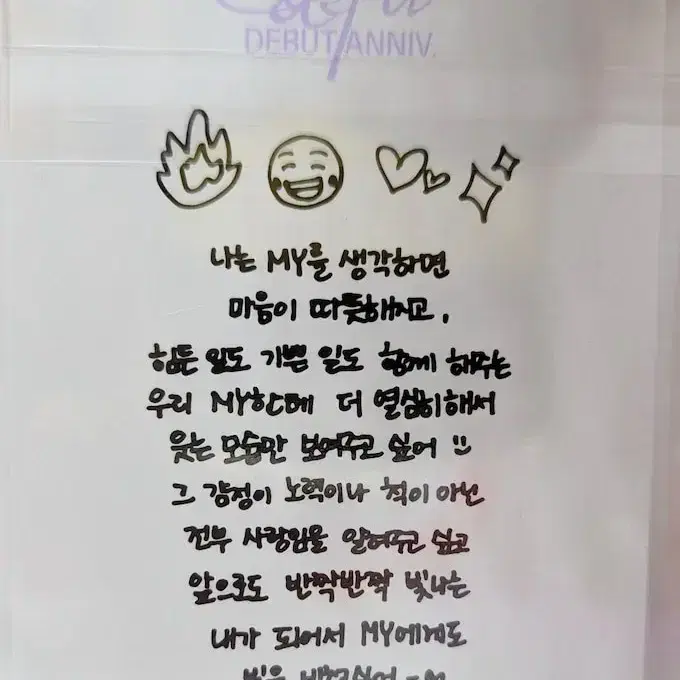 DEBUT ANNIV.
나는 MY를 생각하면
마음이 따뜻해지고,
힘든 일도 기쁜 일도 함께 해주는
우리 MY한테 더 열심히해서
웃는 모습만 보여주고 싶어
그 감정이 노력이나 척이 아닌
전부 사랑임을 알려주고 싶고
앞으로도 반짝반짝 빛나는
내가 되어서 MY에게도